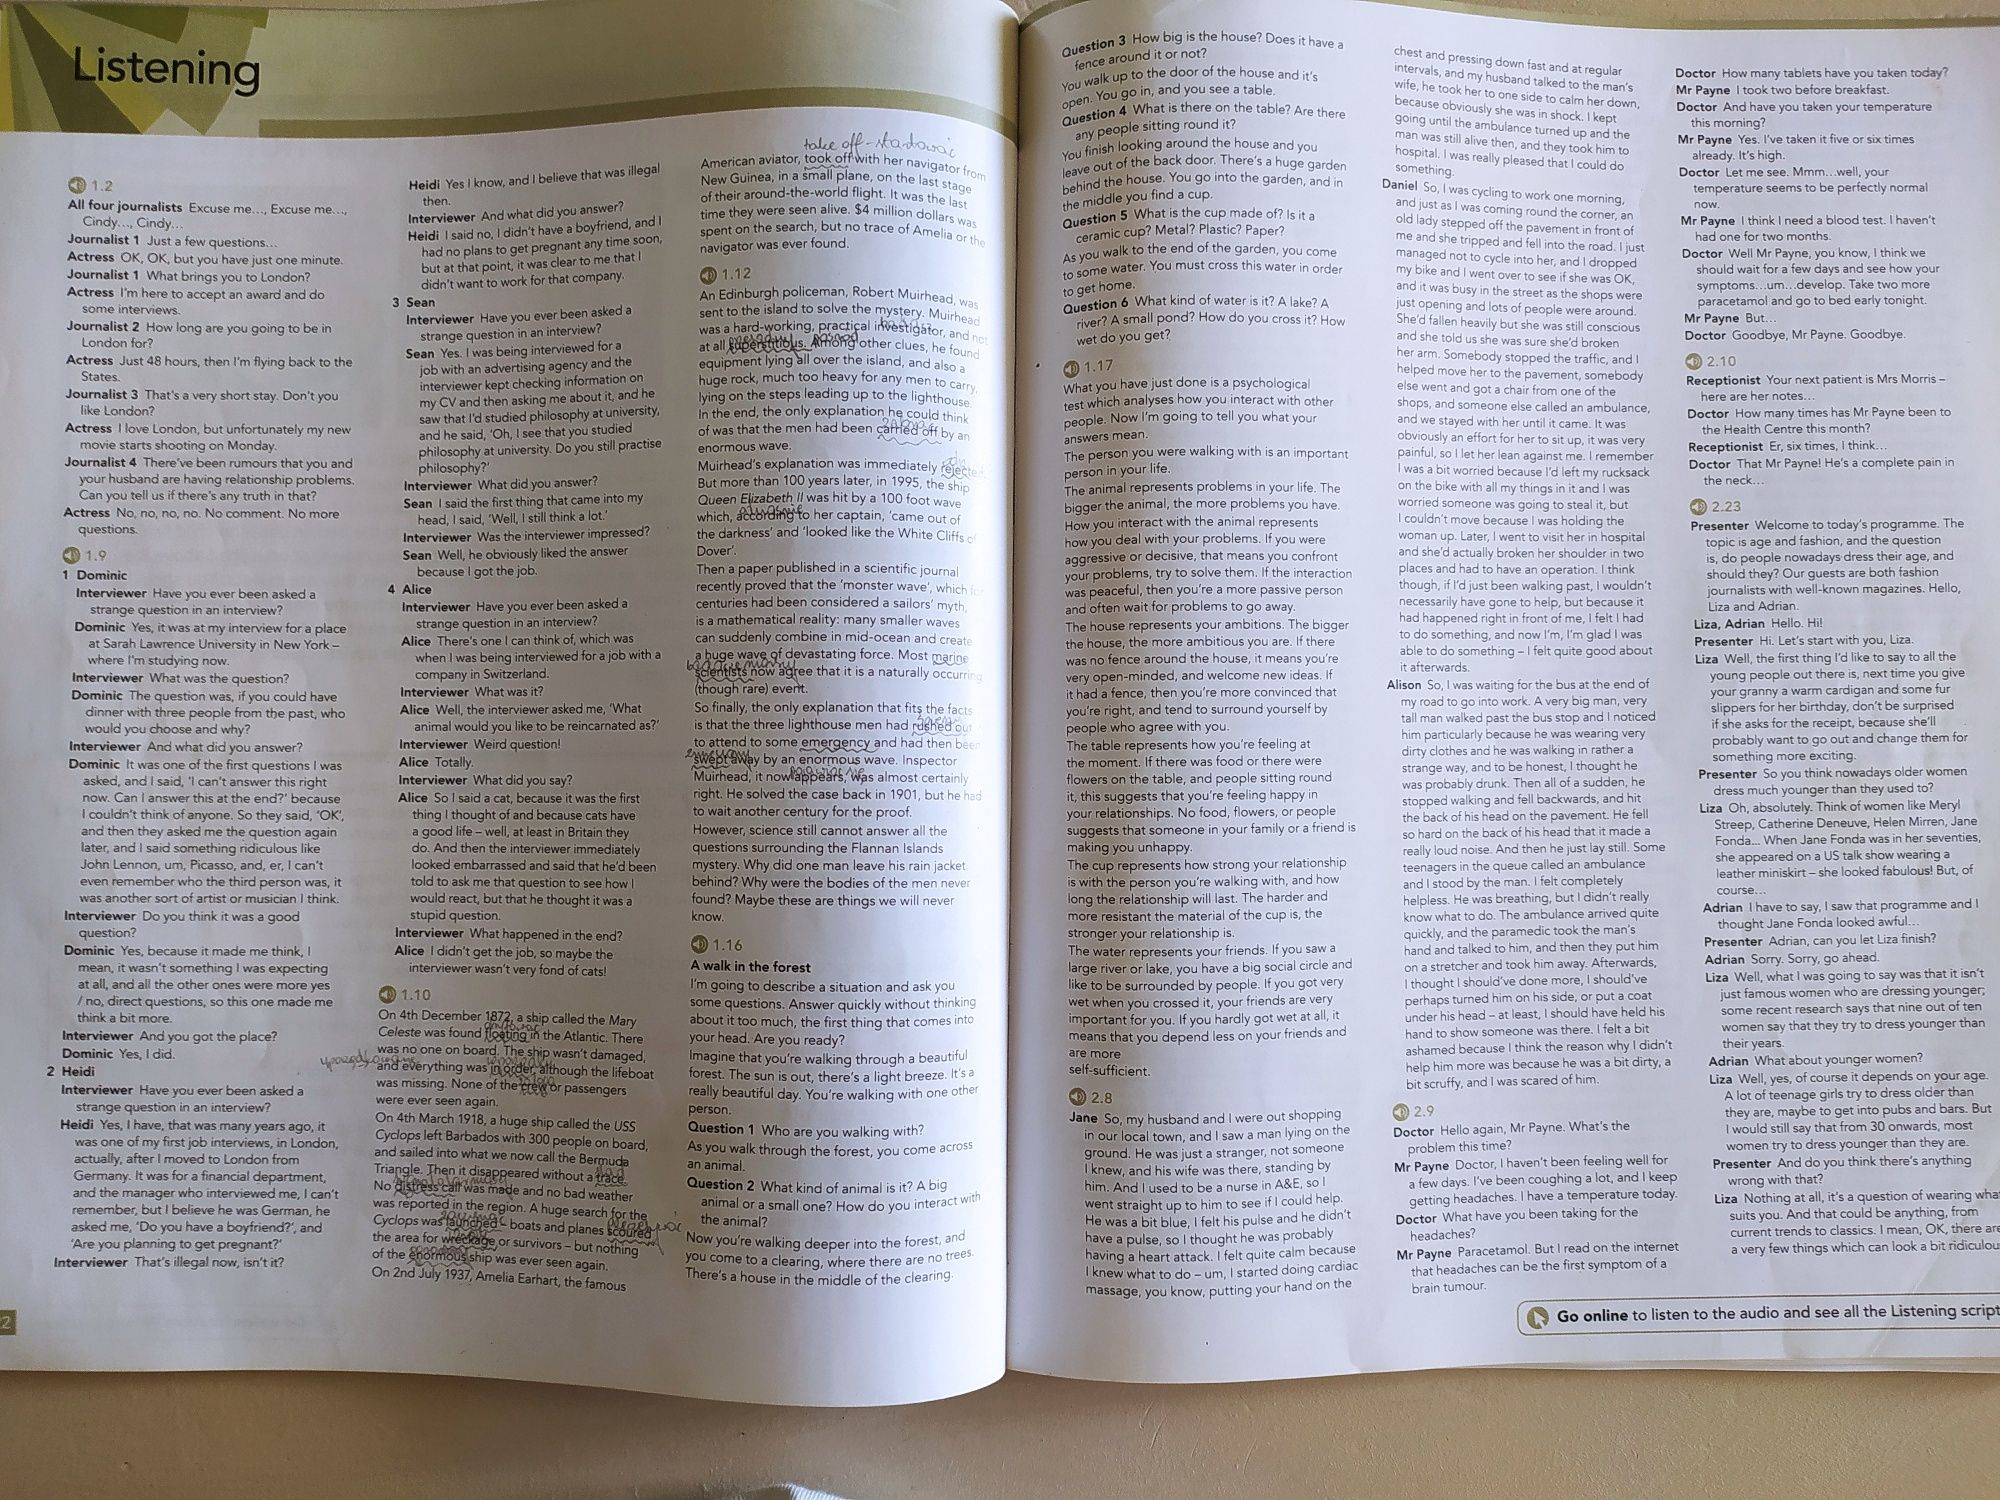 Listening
1.2
All four journalists Excuse me…, Excuse me…,
Cindy…, Cindy…
Journalist 1 Just a few questions…
Actress OK, OK, but you have just one minute.
Journalist 1 What brings you to London?
Actress I'm here to accept an award and do
some interviews.
Journalist 2 How long are you going to be in
London for?
Actress Just 48 hours, then I'm flying back to the
States.
Journalist 3 That's a very short stay. Don't you
like London?
Actress I love London, but unfortunately my new
movie starts shooting on Monday.
Journalist 4 There've been rumours that you and
your husband are having relationship problems.
Can you tell us if there's any truth in that?
Actress No, no, no, no. No comment. No more
questions.
1.9
1 Dominic
Interviewer Have you ever been asked a
strange question in an interview?
Dominic Yes, it was at my interview for a place
at Sarah Lawrence University in New York –
where I'm studying now.
Interviewer What was the question?
Dominic The question was, if you could have
dinner with three people from the past, who
would you choose and why?
Interviewer And what did you answer?
Dominic It was one of the first questions I was
asked, and I said, 'I can't answer this right
now. Can I answer this at the end?' because
I couldn't think of anyone. So they said, 'OK',
and then they asked me the question again
later, and I said something ridiculous like
John Lennon, um, Picasso, and, er, I can't
even remember who the third person was, it
was another sort of artist or musician I think.
Interviewer Do you think it was a good
question?
Dominic Yes, because it made me think, I
mean, it wasn't something I was expecting
at all, and all the other ones were more yes
/ no, direct questions, so this one made me
think a bit more.
Interviewer And you got the place?
Dominic Yes, I did.
2 Heidi
Interviewer Have you ever been asked a
strange question in an interview?
Heidi Yes, I have, that was many years ago, it
was one of my first job interviews, in London,
actually, after I moved to London from
Germany. It was for a financial department,
and the manager who interviewed me, I can't
remember, but I believe he was German, he
asked me, 'Do you have a boyfriend?', and
'Are you planning to get pregnant?'
Interviewer That's illegal now, isn't it?
Heidi Yes I know, and I believe that was illegal
then.
Interviewer And what did you answer?
Heidi I said no, I didn't have a boyfriend, and I
had no plans to get pregnant any time soon,
but at that point, it was clear to me that I
didn't want to work for that company.
3 Sean
Interviewer Have you ever been asked a
strange question in an interview?
Sean Yes. I was being interviewed for a
job with an advertising agency and the
interviewer kept checking information on
my CV and then asking me about it, and he
saw that I'd studied philosophy at university,
and he said, 'Oh, I see that you studied
philosophy at university. Do you still practise
philosophy?'
Interviewer What did you answer?
Sean I said the first thing that came into my
head, I said, 'Well, I still think a lot.'
Interviewer Was the interviewer impressed?
Sean Well, he obviously liked the answer
because I got the job.
4 Alice
Interviewer Have you ever been asked a
strange question in an interview?
Alice There's one I can think of, which was
when I was being interviewed for a job with a
company in Switzerland.
Interviewer What was it?
Alice Well, the interviewer asked me, 'What
animal would you like to be reincarnated as?'
Interviewer Weird question!
Alice Totally.
Interviewer What did you say?
Alice So I said a cat, because it was the first
thing I thought of and because cats have
a good life – well, at least in Britain they
do. And then the interviewer immediately
looked embarrassed and said that he'd been
told to ask me that question to see how I
would react, but that he thought it was a
stupid question.
Interviewer What happened in the end?
Alice I didn't get the job, so maybe the
interviewer wasn't very fond of cats!
1.10
On 4th December 1872, a ship called the Mary
Celeste was found floating in the Atlantic. There
was no one on board. The ship wasn't damaged,
and everything was in order, although the lifeboat
was missing. None of the crew or passengers
were ever seen again.
On 4th March 1918, a huge ship called the USS
Cyclops left Barbados with 300 people on board,
and sailed into what we now call the Bermuda
Triangle. Then it disappeared without a trace.
No distress call was made and no bad weather
was reported in the region. A huge search for the
Cyclops was launched – boats and planes scoured
the area for wreckage or survivors – but nothing
of the enormous ship was ever seen again.
On 2nd July 1937, Amelia Earhart, the famous
take off - startować
American aviator, took off with her navigator from
New Guinea, in a small plane, on the last stage
of their around-the-world flight. It was the last
time they were seen alive. $4 million dollars was
spent on the search, but no trace of Amelia or the
navigator was ever found.
1.12
An Edinburgh policeman, Robert Muirhead, was
sent to the island to solve the mystery. Muirhead
was a hard-working, practical investigator, and not
at all superstitious. Among other clues, he found
equipment lying all over the island, and also a
huge rock, much too heavy for any men to carry,
lying on the steps leading up to the lighthouse.
In the end, the only explanation he could think
of was that the men had been carried off by an
enormous wave.
Muirhead's explanation was immediately rejected.
But more than 100 years later, in 1995, the ship
Queen Elizabeth II was hit by a 100 foot wave
which, according to her captain, 'came out of
the darkness' and 'looked like the White Cliffs of
Dover'.
Then a paper published in a scientific journal
recently proved that the 'monster wave', which for
centuries had been considered a sailors' myth,
is a mathematical reality: many smaller waves
can suddenly combine in mid-ocean and create
a huge wave of devastating force. Most marine
scientists now agree that it is a naturally occurring
(though rare) event.
So finally, the only explanation that fits the facts
is that the three lighthouse men had rushed out
to attend to some emergency and had then been
swept away by an enormous wave. Inspector
Muirhead, it now appears, was almost certainly
right. He solved the case back in 1901, but he had
to wait another century for the proof.
However, science still cannot answer all the
questions surrounding the Flannan Islands
mystery. Why did one man leave his rain jacket
behind? Why were the bodies of the men never
found? Maybe these are things we will never
know.
1.16
A walk in the forest
I'm going to describe a situation and ask you
some questions. Answer quickly without thinking
about it too much, the first thing that comes into
your head. Are you ready?
Imagine that you're walking through a beautiful
forest. The sun is out, there's a light breeze. It's a
really beautiful day. You're walking with one other
person.
Question 1 Who are you walking with?
As you walk through the forest, you come across
an animal.
Question 2 What kind of animal is it? A big
animal or a small one? How do you interact with
the animal?
Now you're walking deeper into the forest, and
you come to a clearing, where there are no trees.
There's a house in the middle of the clearing.
Question 3 How big is the house? Does it have a
fence around it or not?
You walk up to the door of the house and it's
open. You go in, and you see a table.
Question 4 What is there on the table? Are there
any people sitting round it?
You finish looking around the house and you
leave out of the back door. There's a huge garden
behind the house. You go into the garden, and in
the middle you find a cup.
Question 5 What is the cup made of? Is it a
ceramic cup? Metal? Plastic? Paper?
As you walk to the end of the garden, you come
to some water. You must cross this water in order
to get home.
Question 6 What kind of water is it? A lake? A
river? A small pond? How do you cross it? How
wet do you get?
1.17
What you have just done is a psychological
test which analyses how you interact with other
people. Now I'm going to tell you what your
answers mean.
The person you were walking with is an important
person in your life.
The animal represents problems in your life. The
bigger the animal, the more problems you have.
How you interact with the animal represents
how you deal with your problems. If you were
aggressive or decisive, that means you confront
your problems, try to solve them. If the interaction
was peaceful, then you're a more passive person
and often wait for problems to go away.
The house represents your ambitions. The bigger
the house, the more ambitious you are. If there
was no fence around the house, it means you're
very open-minded, and welcome new ideas. If
it had a fence, then you're more convinced that
you're right, and tend to surround yourself by
people who agree with you.
The table represents how you're feeling at
the moment. If there was food or there were
flowers on the table, and people sitting round
it, this suggests that you're feeling happy in
your relationships. No food, flowers, or people
suggests that someone in your family or a friend is
making you unhappy.
The cup represents how strong your relationship
is with the person you're walking with, and how
long the relationship will last. The harder and
more resistant the material of the cup is, the
stronger your relationship is.
The water represents your friends. If you saw a
large river or lake, you have a big social circle and
like to be surrounded by people. If you got very
wet when you crossed it, your friends are very
important for you. If you hardly got wet at all, it
means that you depend less on your friends and
are more
self-sufficient.
2.8
Jane So, my husband and I were out shopping
in our local town, and I saw a man lying on the
ground. He was just a stranger, not someone
I knew, and his wife was there, standing by
him. And I used to be a nurse in A&E, so I
went straight up to him to see if I could help.
He was a bit blue, I felt his pulse and he didn't
have a pulse, so I thought he was probably
having a heart attack. I felt quite calm because
I knew what to do – um, I started doing cardiac
massage, you know, putting your hand on the
chest and pressing down fast and at regular
intervals, and my husband talked to the man's
wife, he took her to one side to calm her down,
because obviously she was in shock. I kept
going until the ambulance turned up and the
man was still alive then, and they took him to
hospital. I was really pleased that I could do
something.
Daniel So, I was cycling to work one morning,
and just as I was coming round the corner, an
old lady stepped off the pavement in front of
me and she tripped and fell into the road. I just
managed not to cycle into her, and I dropped
my bike and I went over to see if she was OK,
and it was busy in the street as the shops were
just opening and lots of people were around.
She'd fallen heavily but she was still conscious
and she told us she was sure she'd broken
her arm. Somebody stopped the traffic, and I
helped move her to the pavement, somebody
else went and got a chair from one of the
shops, and someone else called an ambulance,
and we stayed with her until it came. It was
obviously an effort for her to sit up, it was very
painful, so I let her lean against me. I remember
I was a bit worried because I'd left my rucksack
on the bike with all my things in it and I was
worried someone was going to steal it, but
I couldn't move because I was holding the
woman up. Later, I went to visit her in hospital
and she'd actually broken her shoulder in two
places and had to have an operation. I think
though, if I'd just been walking past, I wouldn't
necessarily have gone to help, but because it
had happened right in front of me, I felt I had
to do something, and now I'm, I'm glad I was
able to do something – I felt quite good about
it afterwards.
Alison So, I was waiting for the bus at the end of
my road to go into work. A very big man, very
tall man walked past the bus stop and I noticed
him particularly because he was wearing very
dirty clothes and he was walking in rather a
strange way, and to be honest, I thought he
was probably drunk. Then all of a sudden, he
stopped walking and fell backwards, and hit
the back of his head on the pavement. He fell
so hard on the back of his head that it made a
really loud noise. And then he just lay still. Some
teenagers in the queue called an ambulance
and I stood by the man. I felt completely
helpless. He was breathing, but I didn't really
know what to do. The ambulance arrived quite
quickly, and the paramedic took the man's
hand and talked to him, and then they put him
on a stretcher and took him away. Afterwards,
I thought I should've done more, I should've
perhaps turned him on his side, or put a coat
under his head – at least, I should have held his
hand to show someone was there. I felt a bit
ashamed because I think the reason why I didn't
help him more was because he was a bit dirty, a
bit scruffy, and I was scared of him.
2.9
Doctor Hello again, Mr Payne. What's the
problem this time?
Mr Payne Doctor, I haven't been feeling well for
a few days. I've been coughing a lot, and I keep
getting headaches. I have a temperature today.
Doctor What have you been taking for the
headaches?
Mr Payne Paracetamol. But I read on the internet
that headaches can be the first symptom of a
brain tumour.
Doctor How many tablets have you taken today?
Mr Payne I took two before breakfast.
Doctor And have you taken your temperature
this morning?
Mr Payne Yes. I've taken it five or six times
already. It's high.
Doctor Let me see. Mmm…well, your
temperature seems to be perfectly normal
now.
Mr Payne I think I need a blood test. I haven't
had one for two months.
Doctor Well Mr Payne, you know, I think we
should wait for a few days and see how your
symptoms…um…develop. Take two more
paracetamol and go to bed early tonight.
Mr Payne But…
Doctor Goodbye, Mr Payne. Goodbye.
2.10
Receptionist Your next patient is Mrs Morris –
here are her notes…
Doctor How many times has Mr Payne been to
the Health Centre this month?
Receptionist Er, six times, I think…
Doctor That Mr Payne! He's a complete pain in
the neck…
2.23
Presenter Welcome to today's programme. The
topic is age and fashion, and the question
is, do people nowadays dress their age, and
should they? Our guests are both fashion
journalists with well-known magazines. Hello,
Liza and Adrian.
Liza, Adrian Hello. Hi!
Presenter Hi. Let's start with you, Liza.
Liza Well, the first thing I'd like to say to all the
young people out there is, next time you give
your granny a warm cardigan and some fur
slippers for her birthday, don't be surprised
if she asks for the receipt, because she'll
probably want to go out and change them for
something more exciting.
Presenter So you think nowadays older women
dress much younger than they used to?
Liza Oh, absolutely. Think of women like Meryl
Streep, Catherine Deneuve, Helen Mirren, Jane
Fonda… When Jane Fonda was in her seventies,
she appeared on a US talk show wearing a
leather miniskirt – she looked fabulous! But, of
course…
Adrian I have to say, I saw that programme and I
thought Jane Fonda looked awful…
Presenter Adrian, can you let Liza finish?
Adrian Sorry. Sorry, go ahead.
Liza Well, what I was going to say was that it isn't
just famous women who are dressing younger;
some recent research says that nine out of ten
women say that they try to dress younger than
their years.
Adrian What about younger women?
Liza Well, yes, of course it depends on your age.
A lot of teenage girls try to dress older than
they are, maybe to get into pubs and bars. But
I would still say that from 30 onwards, most
women try to dress younger than they are.
Presenter And do you think there's anything
wrong with that?
Liza Nothing at all, it's a question of wearing wha
suits you. And that could be anything, from
current trends to classics. I mean, OK, there are
a very few things which can look a bit ridiculou
Go online to listen to the audio and see all the Listening script